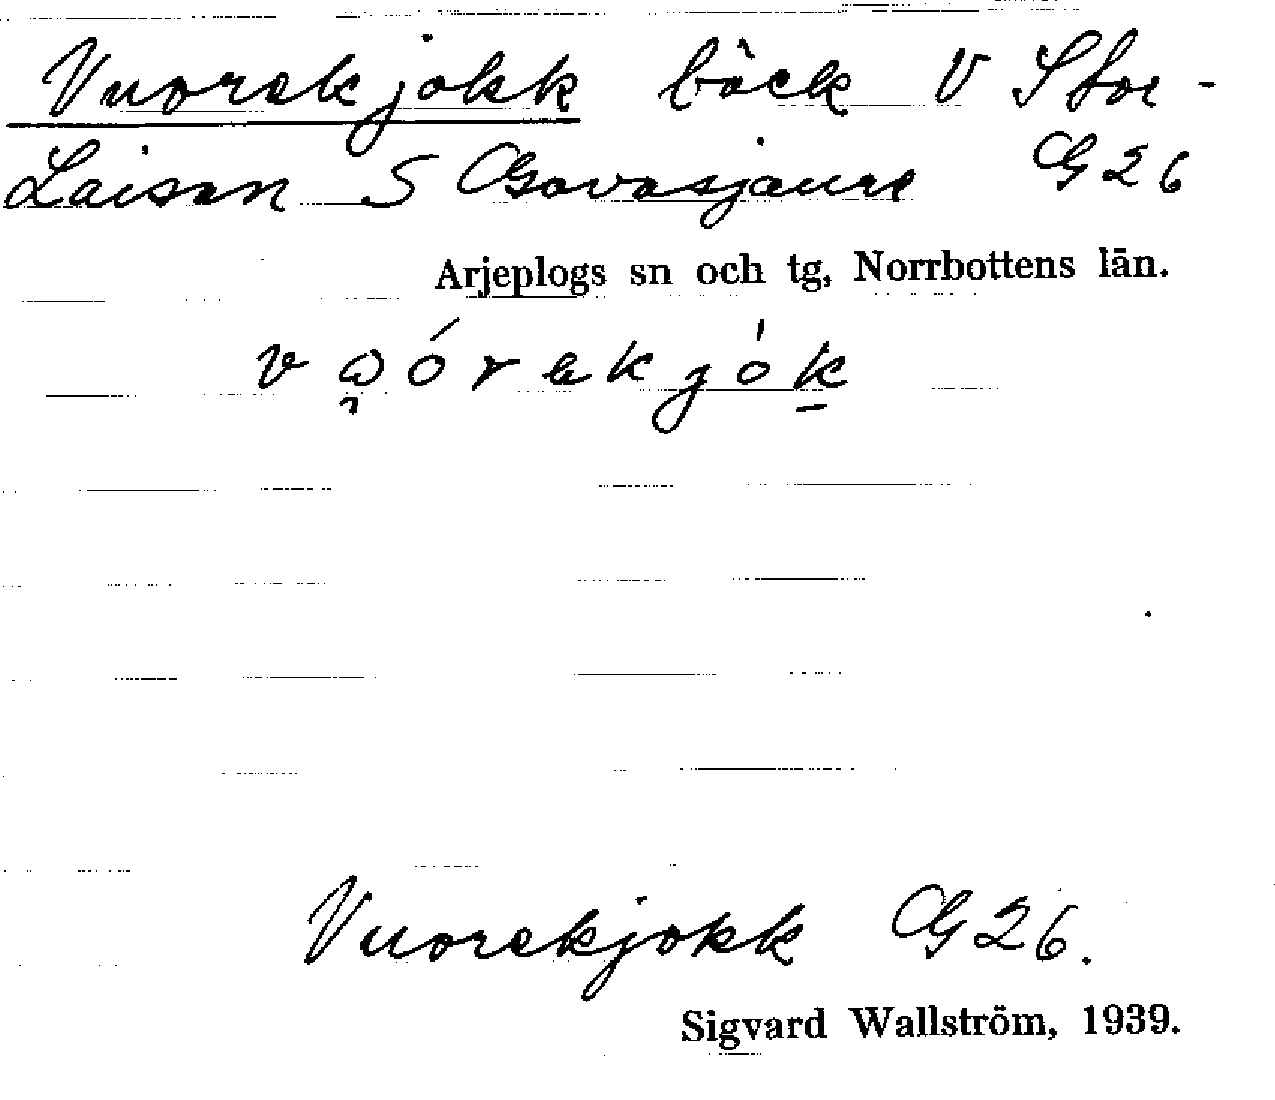 Vuorekjokk bäck V Stor-
Laisan S Gavasjaure G 26
Arjeplogs sn och tg, Norrbottens län.
Vuorekjokk G 26.
Sigvard Wallström, 1939.